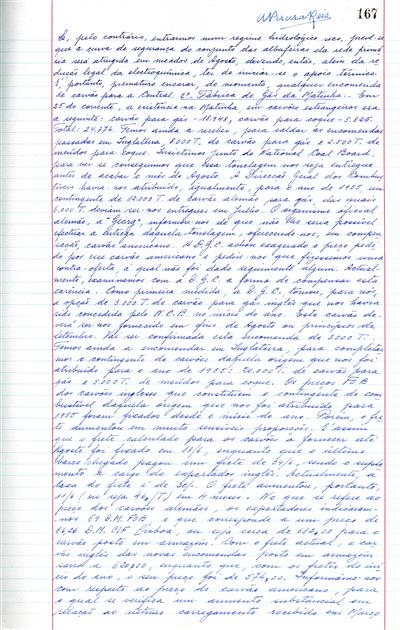 167
Se, pelo contrário, entrarmos num regime hidrológico seco, prevê-se
que a curva de segurança do conjunto das albufeiras da rede primá-
ria será atingida em meados de Agosto, devendo, então, além da re-
dução legal da electroquímica, ter de iniciar-se o apoio térmico.
É, portanto, prematuro encarar, de momento, qualquer encomenda
de carvão para a Central e Fábrica de Gás da Matinha. Em
25 do corrente, a existência na Matinha em carvões estrangeiros era
a seguinte: carvão para gás - 18.948, carvão para coque - 5.826.
Total: 24.774. Temos ainda a receber, para saldar as encomendas
passadas em Inglaterra, T. de carvão para gás e 2.500 T. de
meúdos para coque. Insistimos junto do National Coal Board,
para ver se conseguimos que essa tonelagem nos seja entregue
antes de acabar o mês de Agosto. A Direcção Geral dos Combus-
tíveis havia-nos atribuído, igualmente, para o ano de 1955, um
contingente de 52.000 T. de carvão alemão para gás, das quais
6.000 T. deviam ser-nos entregues em Julho. O organismo oficial
alemão, a "Georg", informou-nos de que não lhe será possível
efectivar a entrega daquela tonelagem, oferecendo-nos, em compen-
sação, carvão americano. A D.G.C. achou exagerado o preço pedi-
do por esse carvão americano e pediu-nos que fizéssemos uma
contra-oferta, a qual não foi dado seguimento algum. Actual-
mente, examinamos com a D.G.C. a forma de compensar esta
carência. Como primeira medida, a D.G.C. tomou, para nós,
a opção de 3.000 T. de carvão para gás inglês que nos havia
sido concedida pelo N.C.B. no início do ano. Este carvão de-
verá ser-nos fornecido em fins de Agosto ou princípios de
Setembro. Vai ser confirmada esta encomenda de 3.000 T.
Temos ainda a encomendar em Inglaterra, para completar-
mos o contingente de carvões daquela origem que nos foi
atribuído para o ano de 1955: 20.000 T. de carvão para
gás e 5.000 T. de meúdos para coque. Os preços FOB
dos carvões ingleses que constituem o contingente de com-
bustível daquela origem que nos foi atribuído para
1955 foram fixados desde o início do ano. Porém, o fre-
te aumentou em muito sensíveis proporções. É assim
que o frete calculado para os carvões a fornecer até
Agosto foi fixado em 18/6, enquanto que o último
barco chegado pagou um frete de 34/6, sendo o suple-
mento a cargo do exportador inglês. Actualmente, a
taxa do frete é de 30/-. O frete aumentou, portanto,
11/6 (ou seja T) em 4 meses. No que se refere ao
preço dos carvões alemães, os exportadores indicaram-
-nos 69 D.M. FOB, o que corresponde a um preço de
D.M. CIF Lisboa, ou seja cerca de para o
carvão posto em armazém. Com o frete actual, o car-
vão inglês das novas encomendas posto em armazém
sairá a 620$00, enquanto que, com os fretes do iní-
cio do ano, o seu preço foi de 574$00. Informámo-nos
com respeito ao preço do carvão americano, para
o qual se verifica um aumento substancial em
relação ao último carregamento recebido em Março,